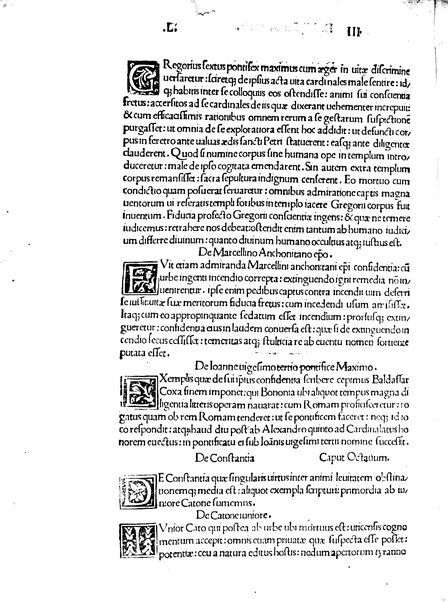 .L. III
GRegorius sextus pontifex maximus cum æger in uitæ discrimine
uersaretur: sciretq; de ipsius acta uita cardinales male sentire: id/
q; habitis inter se colloquiis eos ostendisse: animi sui conscientia
fretus: accersitos ad se cardinales de iis quæ dixerant uehementer increpuit:
& cum efficacissimis rationibus omnem rerum a se gestarum suspictionē
purgasset: ut omnia de se exploratiora essent hoc addidit: ut defuncti cor/
pus in feretro ante ualuas ædis sancti Petri statuerent: easq; ante diligenter
clauderent. Quod si numine corpus sine humana ope in templum intro/
duceretur: male de ipso cogitata emendarent. Sin autem extra templum
corpus remansisset: sacra sepultura indignum censerent. Eo mortuo cum
condictio quam posuerat seruaretur: omnibus admiratione captis magna
uentorum ui referatis templi foribus in templo iacere Gregorii corpus fuit
inuentum. Fiducia profecto Gregorii conscientiæ ingens: & quæ ne temere
iudicemus: retrahere nos debeat: ostendit enim tantum ab humano iudici/
um differre diuinum: quanto diuinum humano occultius atq; iustius est.
De Marcellino Anchonitano epō.
FVit etiam admiranda Marcellini anchonitani epī confidentia: cū
urbe ingenti incendio correpta: extinguendo igni remedia nō in/
uenirentur. ipse enim pedibus captus contra incendii uim deferri
se iussit: uitæ suæ meritorum fiducia fretus: cum incedendi usum amisisset.
Itaq; cum eo appropinquante sedatum esset incendium: prorsusq; extin/
gueretur: confidentia eius in laudem conuersa est: quæ si de extinguendo in
cendio secus cessisset: temeritas atq; stultitia re ab euentu nomen sortiente
putata esset.
De Ioanne uigesimotertio pontifice Maximo.
EXemplis quæ de sui ipsius confidentia scribere cepimus Baldassar
Coxa finem imponet: qui Bononia ubi aliquot tempus magna di
ligentia litteris operam nauarat: cum Romam proficisceretur: ro
gatus quam ob rem Romam tenderet: ut se pontificem faceret: neq; id io
co respondit: atq; haud diu post ab Alexandro quinto ad Cardinalatus ho
norem euectus: in pontificatu ei sub Ioānis uigesimi tertii nomine successit.
De Constantia Caput Octauum.
DE Constantia quæ singularis uirtus inter animi leuitatem obstina/
tionemq; media est: aliquot exempla scripturi: primordia ab iu/
niore Catone sumemus.
De Catone iuniore.
IVnior Cato qui postea ab urbe ubi mortuus est: uticensis cogno
mentum accepit: omnis etiam priuatæ quæ suspecta esse posset:
potentiæ: ceu a natura editus hostis: nodum apertorum tyranno